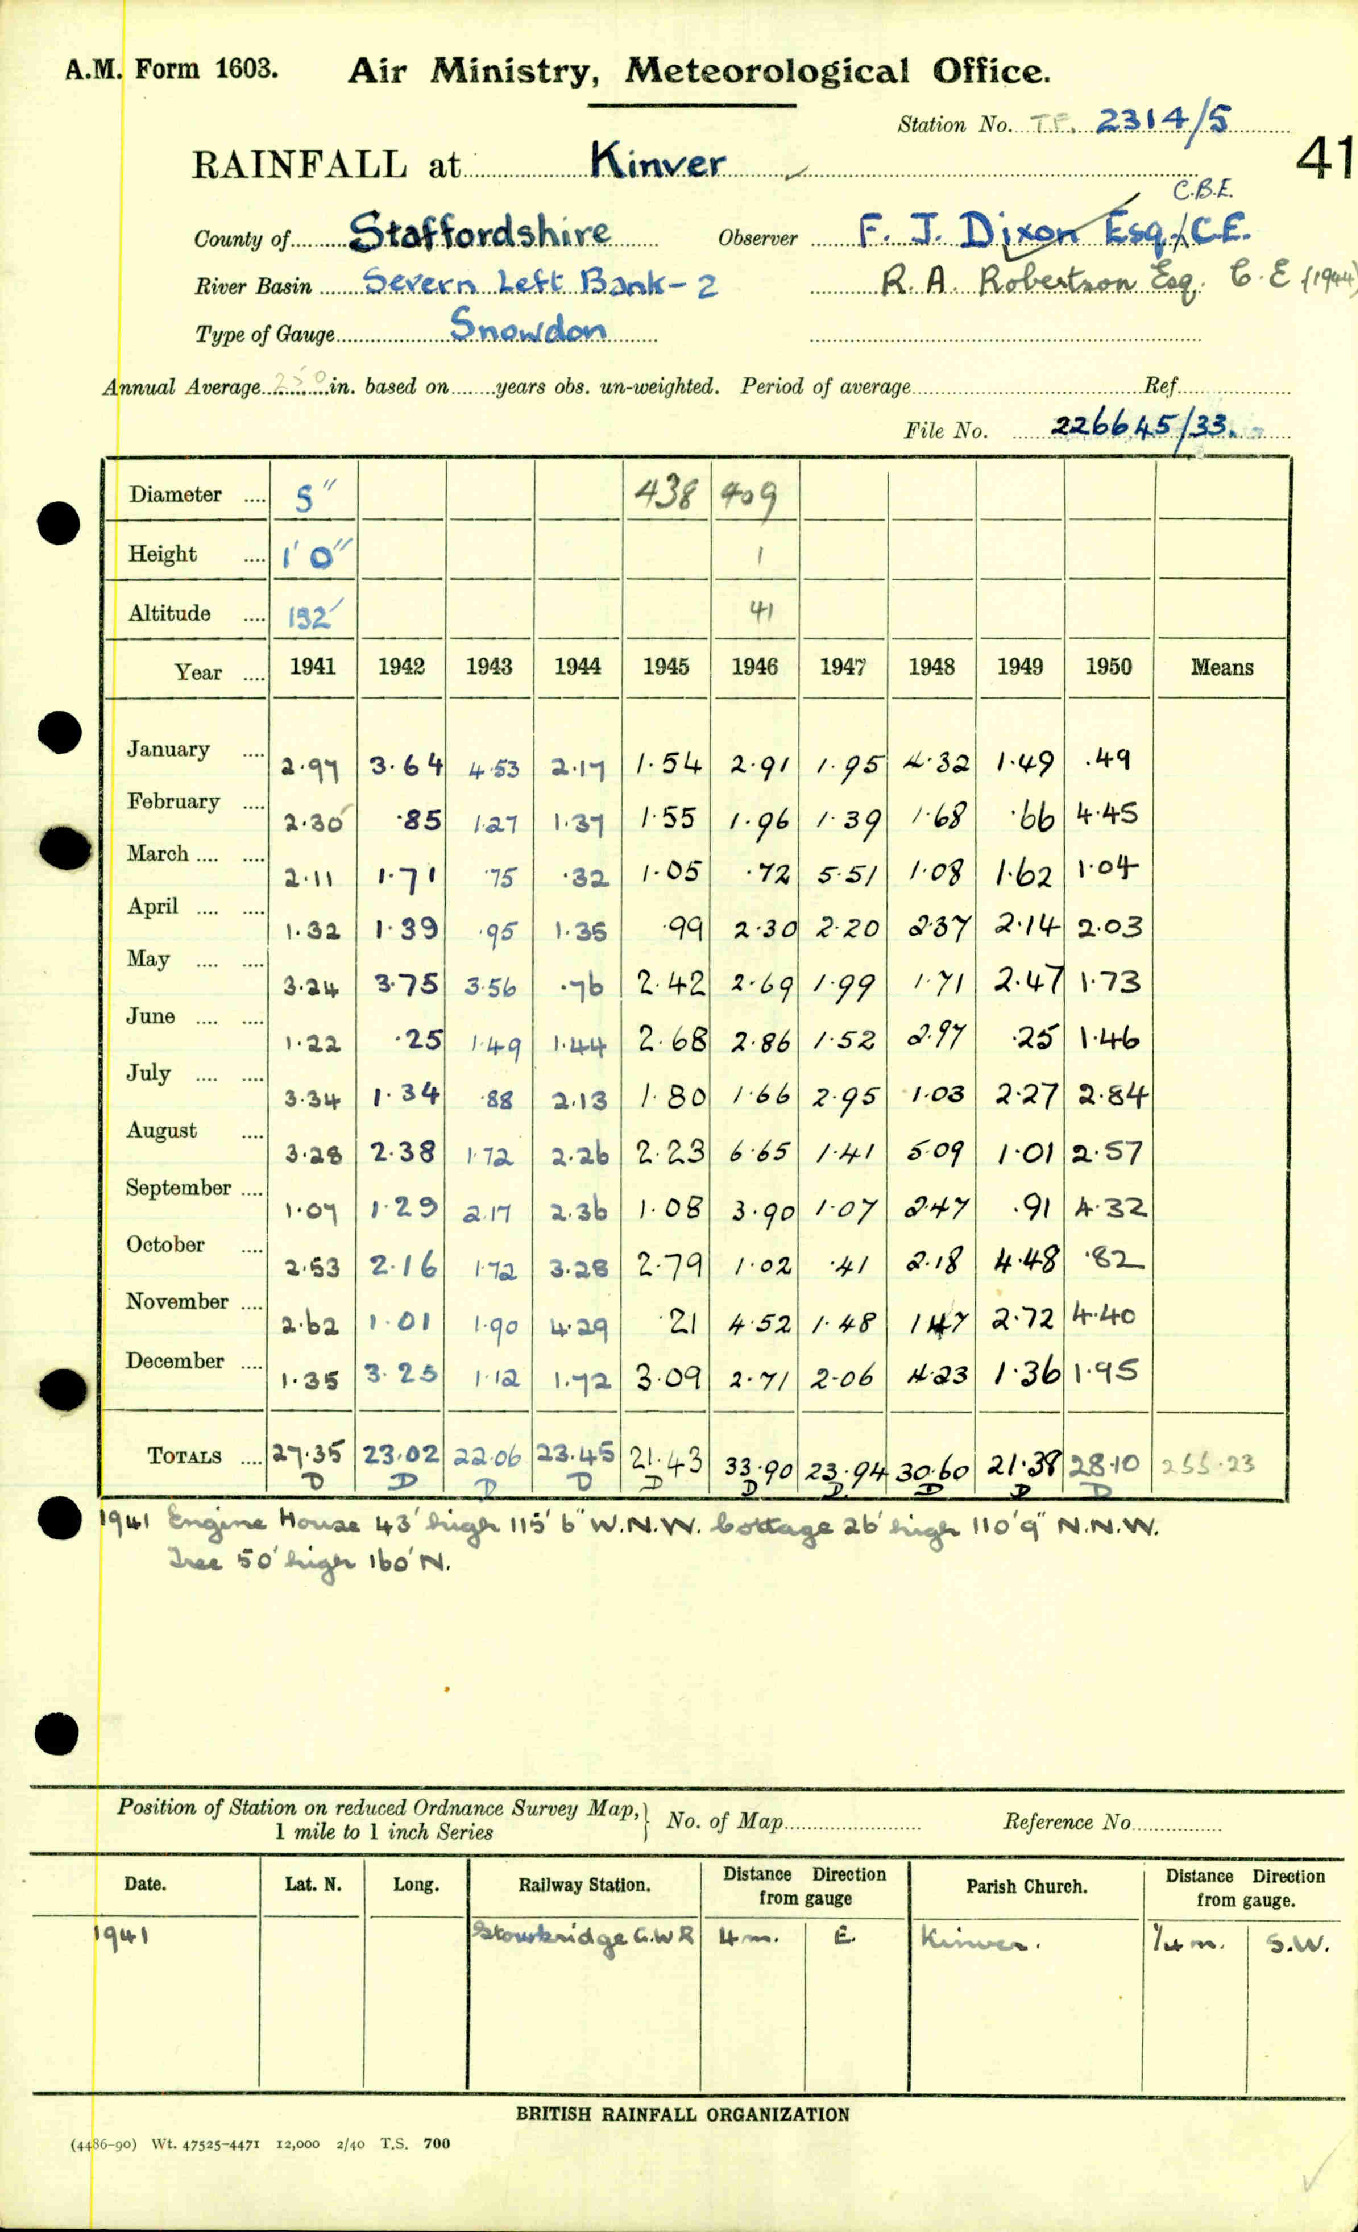 A.M. Form 1603. Air Ministry, Meteorological Office.
Station No. T.F. 2314/5
41
RAINFALL at Kinver
C.B.E.
County of Staffordshire Observer F. J. Dixon Esq. C.E.
River Basin Severn Left Bank-2 R. A. Robertson Esq. C.E (1944)
Type of Gauge Snowdon
Annual Average 250 in. based on years obs. un-weighted. Period of average Ref.
File No. 226645/33.
Diameter 5" 438 409
Height 1' 0" 1
Altitude 192' 41
Year 1941 1942 1943 1944 1945 1946 1947 1948 1949 1950 Means
January 2.97 3.64 4.53 2.17 1.54 2.91 1.95 4.32 1.49 .49
February 2.30 .85 1.27 1.37 1.55 1.96 1.39 1.68 .66 4.45
March 2.11 1.71 .75 .32 1.05 .72 5.51 1.08 1.62 1.04
April 1.32 1.39 .95 1.35 .99 2.30 2.20 2.37 2.14 2.03
May 3.24 3.75 3.56 .76 2.42 2.69 1.99 1.71 2.47 1.73
June 1.22 .25 1.49 1.44 2.68 2.86 1.52 2.97 .25 1.46
July 3.34 1.34 .88 2.13 1.80 1.66 2.95 1.03 2.27 2.84
August 3.28 2.38 1.72 2.26 2.23 6.65 1.41 5.09 1.01 2.57
September 1.07 1.29 2.17 2.36 1.08 3.90 1.07 2.47 .91 4.32
October 2.53 2.16 1.72 3.28 2.79 1.02 .41 2.18 4.48 .82
November 2.62 1.01 1.90 4.29 .21 4.52 1.48 1.47 2.72 4.40
December 1.35 3.25 1.12 1.72 3.09 2.71 2.06 4.23 1.36 1.95
TOTALS 27.35 23.02 22.06 23.45 21.43 33.90 23.94 30.60 21.38 28.10 255.23
D D D D D D D D D D
1941 Engine House 43' high 115' 6" W.N.W. Cottage 26' high 110' 9" N.N.W.
Tree 50' high 160' N.
Position of Station on reduced Ordnance Survey Map, } No. of Map Reference No
1 mile to 1 inch Series
Date. Lat. N. Long. Railway Station. Distance Direction from gauge Parish Church. Distance Direction from gauge.
1941 Stourbridge G.W.R 4 m. E. Kinver. 1/4 m. S.W.
BRITISH RAINFALL ORGANIZATION
(4486-90) Wt. 47525-4471 12,000 2/40 T.S. 700